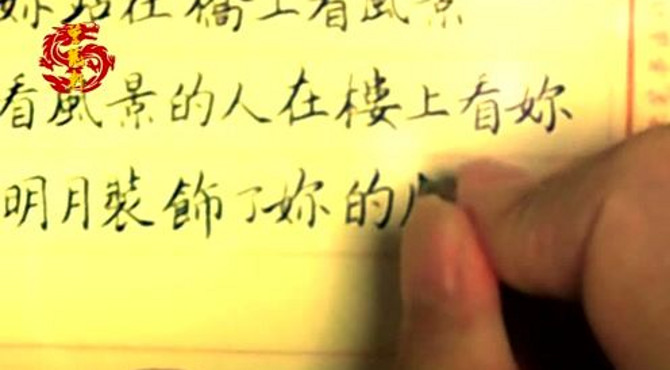 妳站在橋上看風景
看風景的人在樓上看妳
明月裝飾了妳的